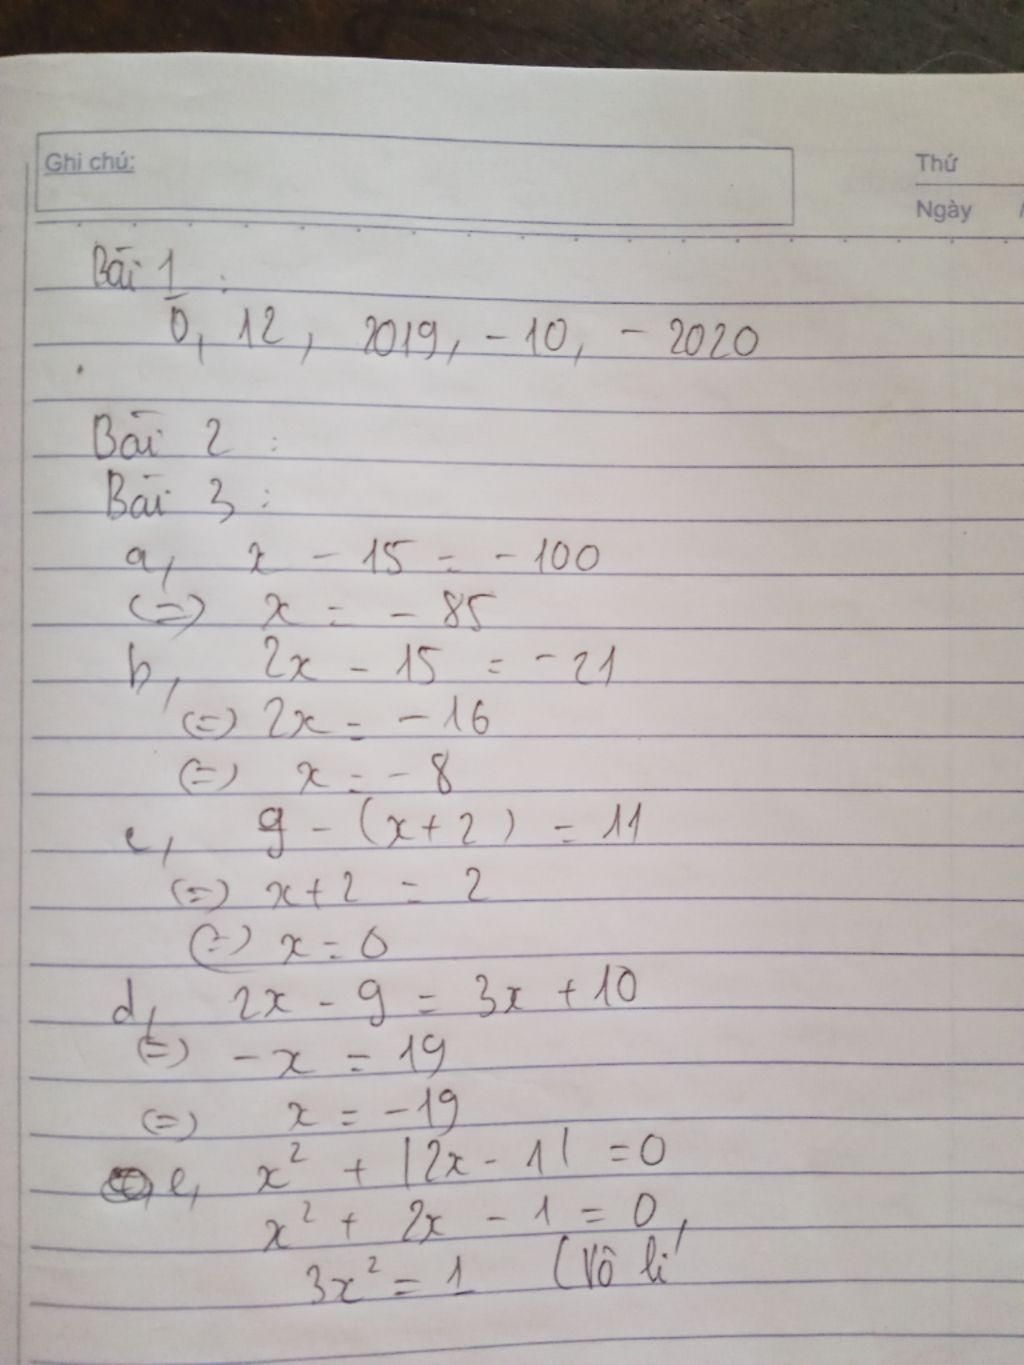 Ghi chú:
Thứ
Ngày
Bài 1 :
0, 12, 2019, -10, - 2020
Bài 2 :
Bài 3 :
a, x - 15 = - 100
(=) x = - 85
b, 2x - 15 = - 21
(=) 2x = - 16
(=) x = - 8
c, 9 - (x+2) = 11
(=) x+2 = 2
(=) x = 0
d, 2x - 9 = 3x + 10
(=) -x = 19
(=) x = -19
e, x² + |2x - 1| = 0
x² + 2x - 1 = 0
3x² = 1 (Vô lí